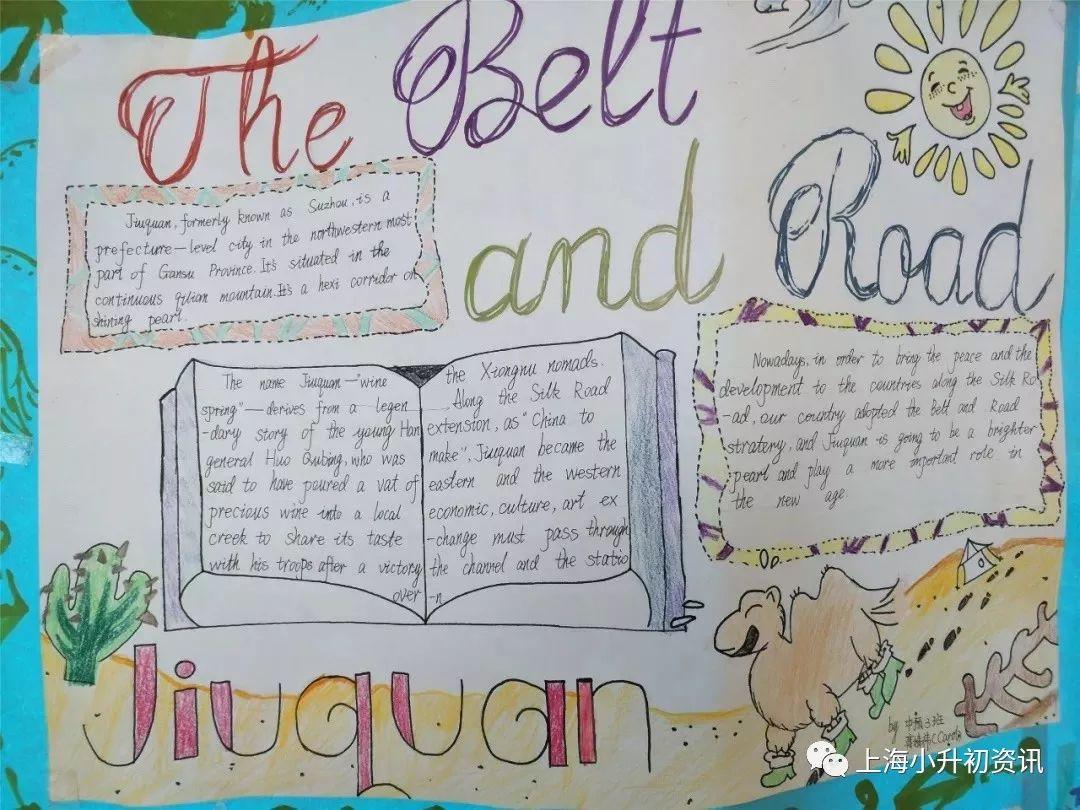 The Belt
and Road
Jiuquan, formerly known as Suzhou, is a
prefecture-level city in the northwestern most
part of Gansu Province. It's situated in the
continuous qilian mountain. It's a hexi corridor on
shining pearl.
The name Jiuquan—"wine
spring"—derives from a legen
-dary story of the young Han
general Huo Qubing, who was
said to have poured a vat of
precious wine into a local
creek to share its taste
with his troops after a victory
over
the Xiongnu nomads.
Along the Silk Road
extension, as "China to
make", Jiuquan became the
eastern and the western
economic, culture, art ex
-change must pass through
the channel and the statio
-n
Nowadays, in order to bring the peace and the
development to the countries along the Silk Ro
-ad, our country adopted the Belt and Road
stratery, and Jiuquan is going to be a brighter
pearl and play a more important role in
the new age
Jiuquan
by 中预3班
上海小升初资讯